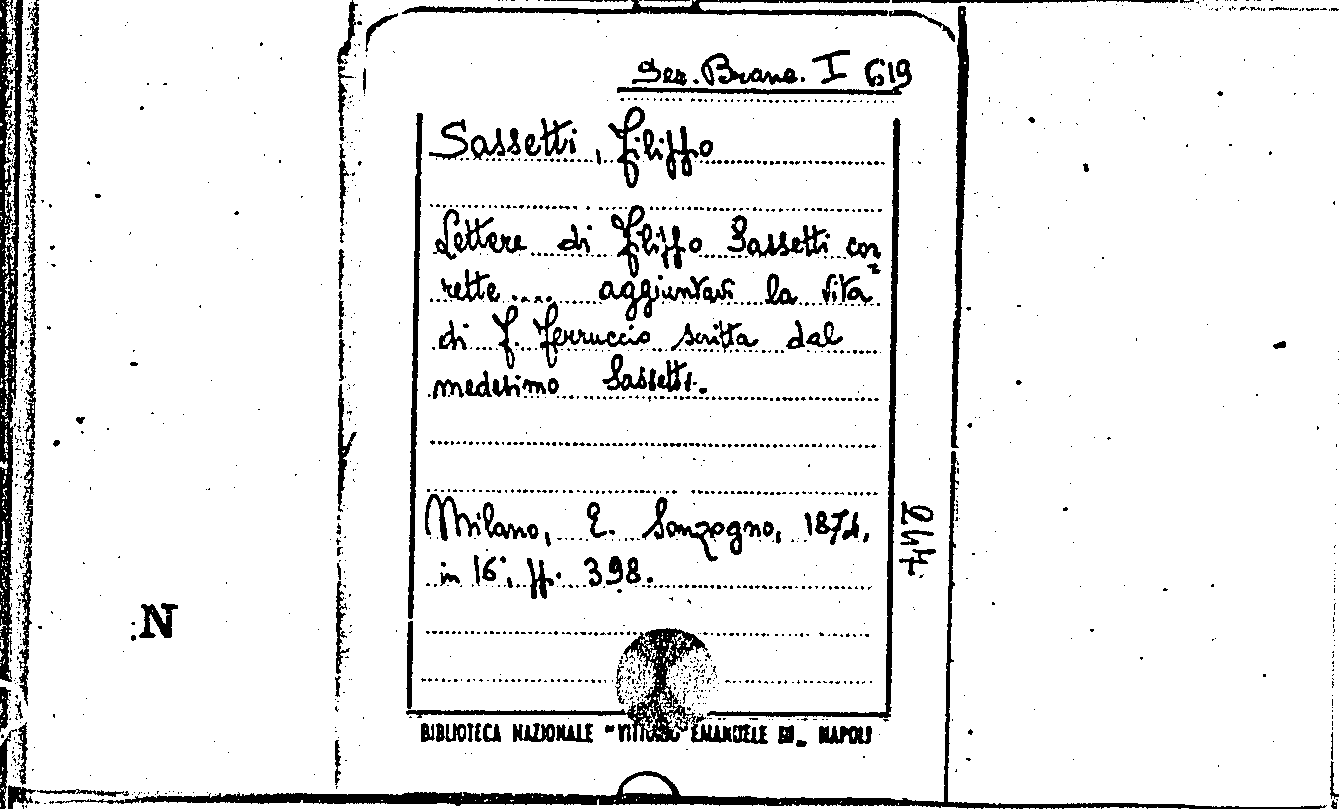 Sez. Branc. I 619
Sassetti, Filippo
Lettere di Filippo Sassetti cor=
rette .... aggiuntavi la vita
di F. Ferruccio scritta dal
medesimo Sassetti.
Milano, E. Sonzogno, 1874,
in 16°, pp. 398.
244
N
BIBLIOTECA NAZIONALE "VITTORIO EMANUELE III" NAPOLI